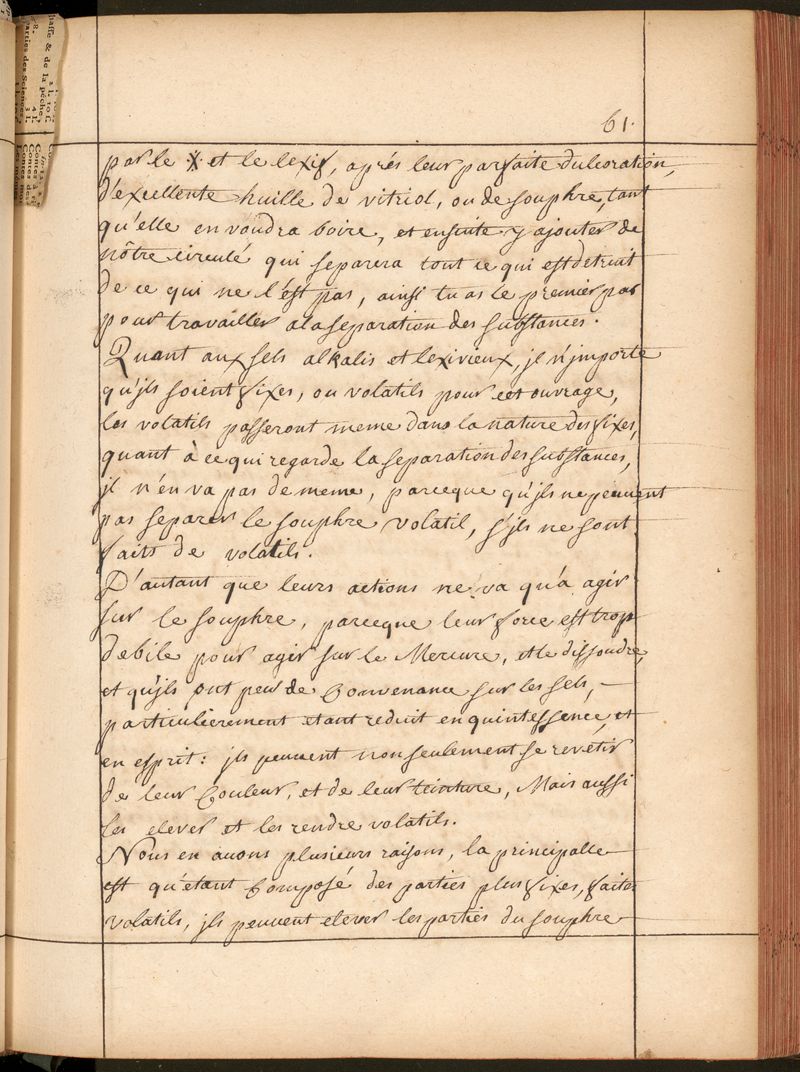 61.
par le et le lexif, aprés leur parfaite dulcoration,
d'excellente huille de vitriol, ou de souphre, tant
qu'elle en voudra boire, et ensuite y ajouter de
nôtre circulé qui separera tout ce qui est detruit
de ce qui ne l'est pas, ainsi tu as le premier pas
pour travailler a la separation des substances.
Quant aux sels alkalis et lexivieux, jl n'jmporte
qu'jls soient fixes, ou volatils pour cet ouvrage,
les volatils passeront meme dans la nature des fixes,
quant à ce qui regarde la separation des substances,
jl n'en va pas de meme, parceque qu'jls ne peuvent
pas separer le souphre volatil, s'jls ne sont
faits de volatils.
D'autant que leurs actions ne va qu'a agir
sur le souphre, parceque leur force est trop
debile pour agir sur le Mercure, et le dissoudre,
et qu'jls ont peu de Convenance sur les sels, –
particulierement etant reduit en quintessence, et
en esprit: jls peuvent non seulement se revétir
de leur Couleur, et de leur teinture, Mais aussi
les elever et les rendre volatils.
Nous en auons plusieurs raisons, la principalle
est qu'etant Composé des parties plus fixes, faites
volatils, jls peuvent elever les parties du souphre
affe & de la pêche,
parties des Sciences,